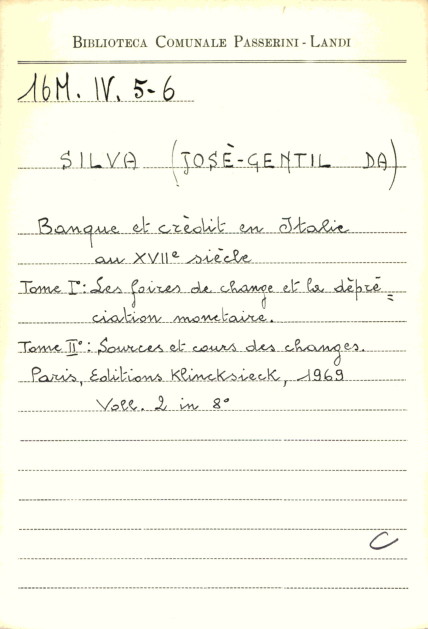 BIBLIOTECA COMUNALE PASSERINI - LANDI
16M. IV. 5-6
SILVA (JOSÈ-GENTIL DA)
Banque et crèdit en Italie
au XVIIe siècle
Tome I°: Les foires de change et la dèprè=
ciation monetaire.
Tome II°: Sources et cours des changes.
Paris, Editions Klincksieck, 1969
Voll. 2 in 8°
C